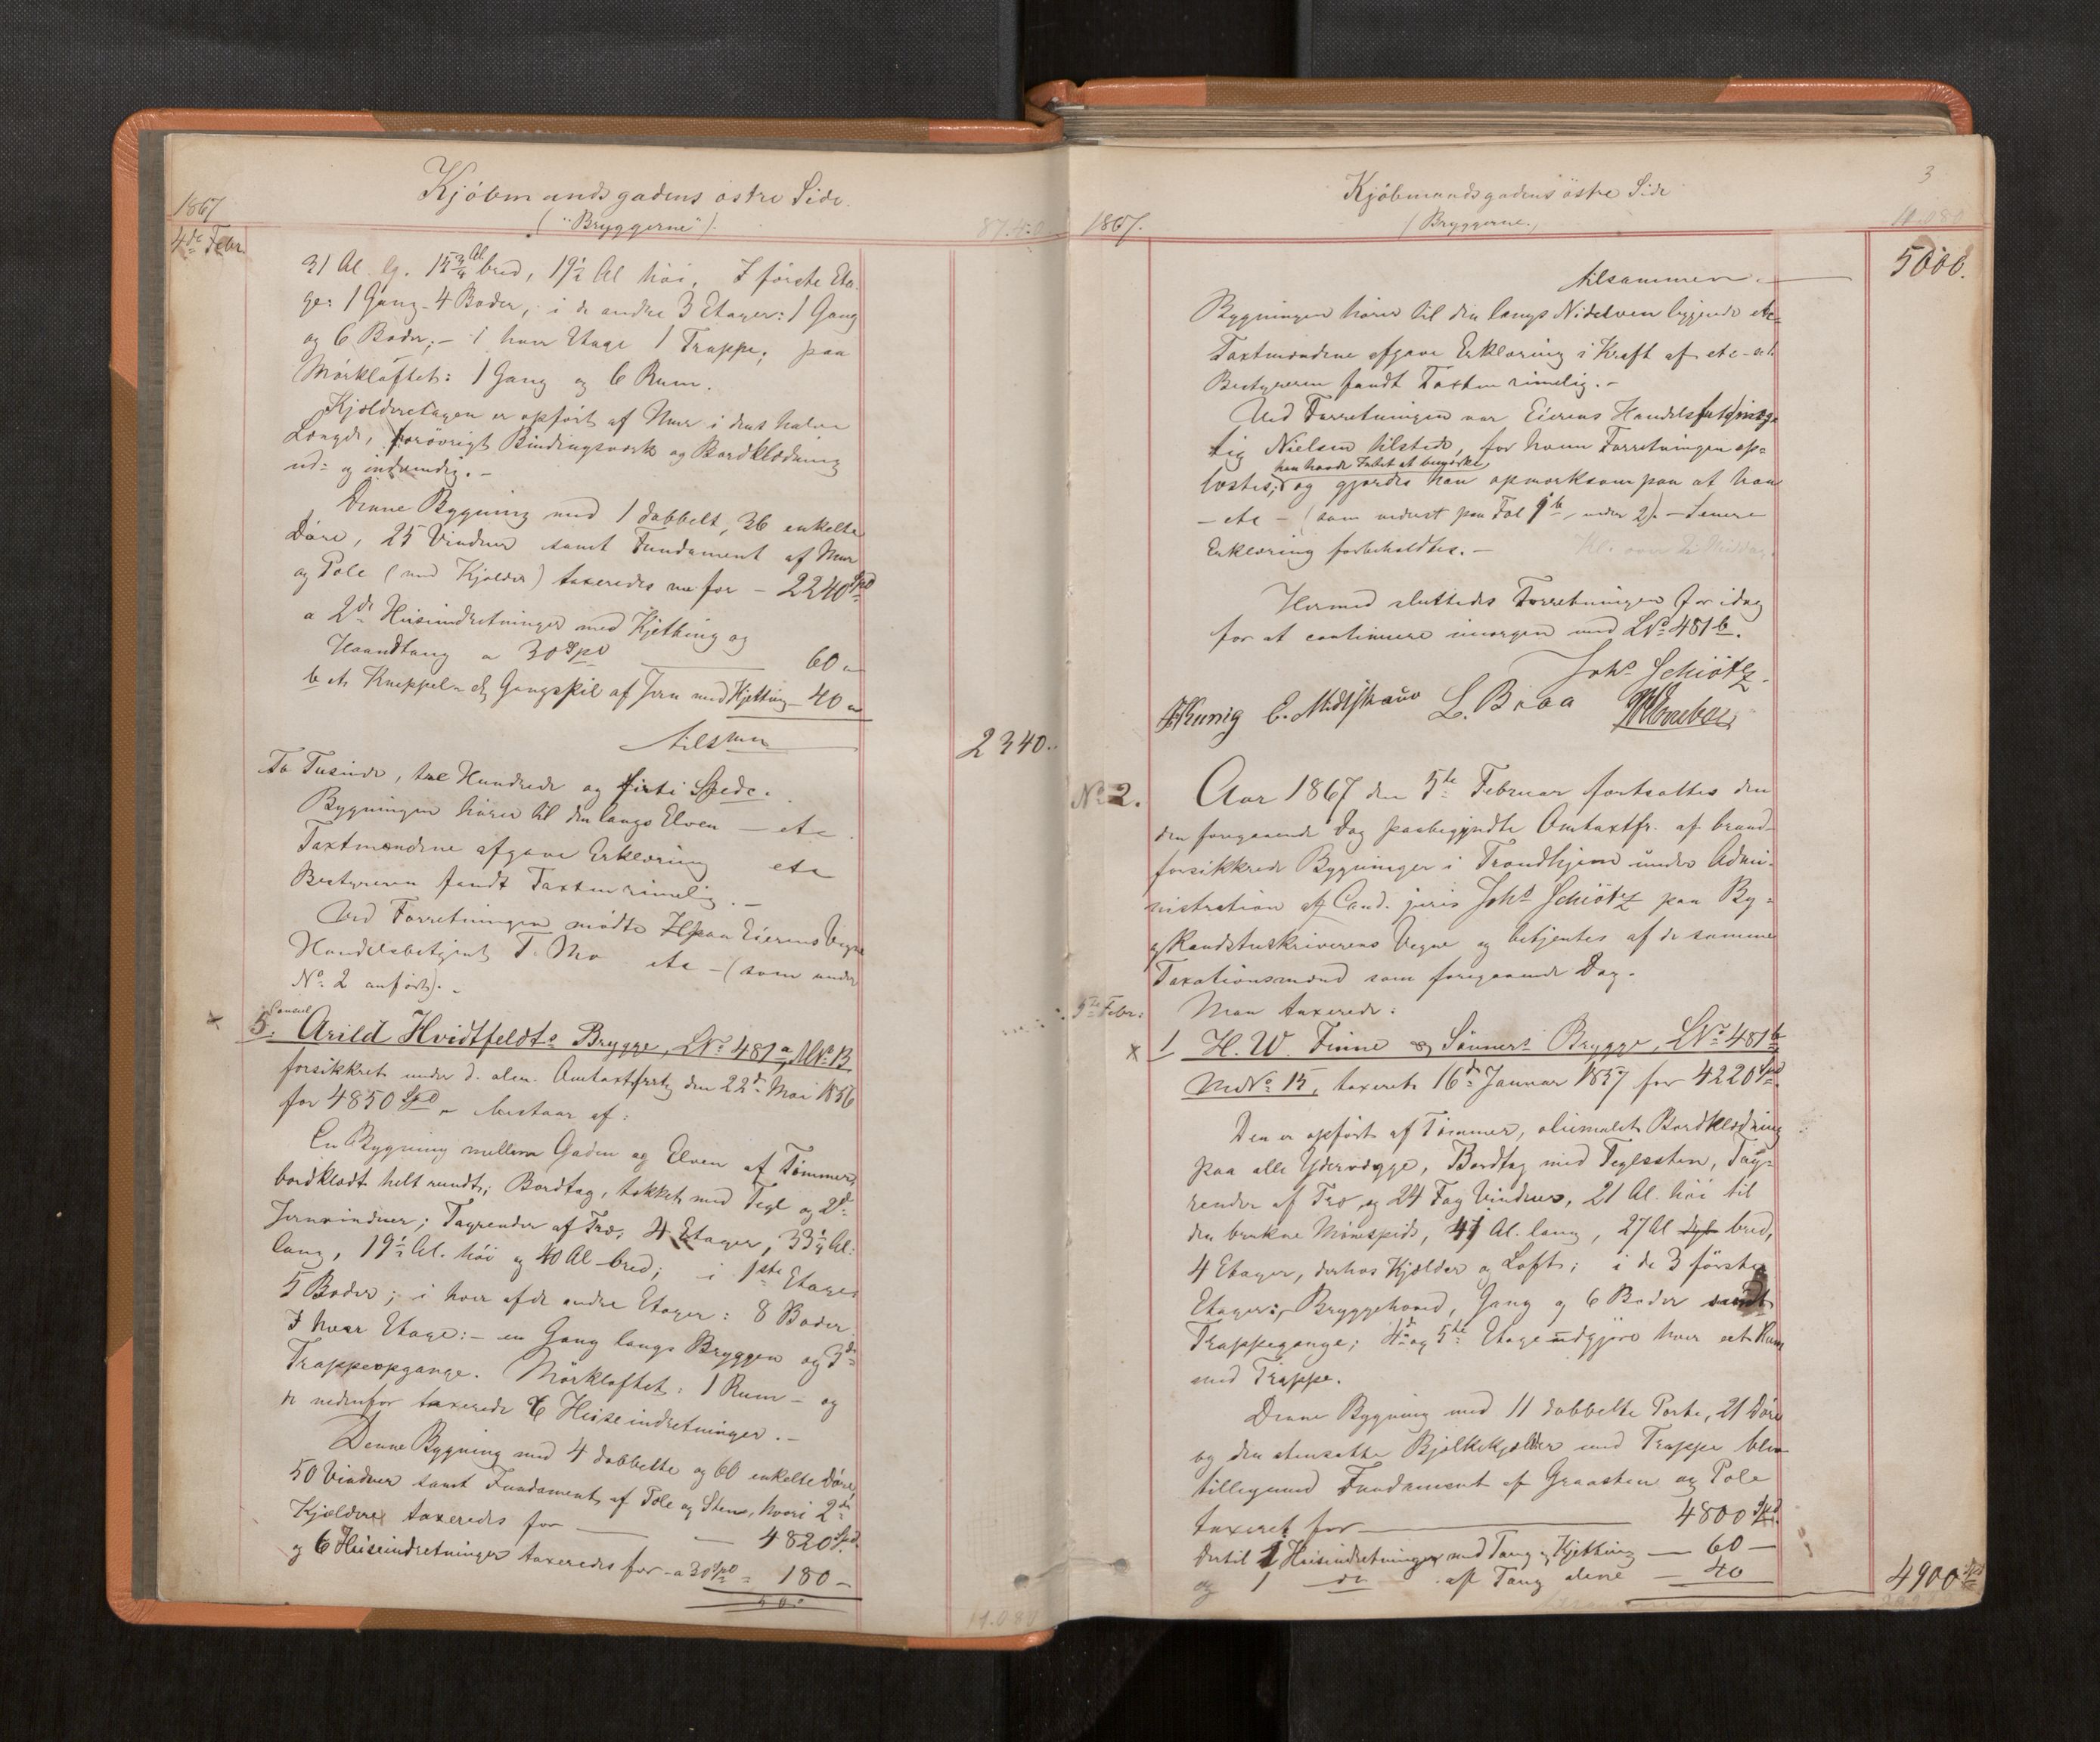 Kjöbmandsgadens östre Side.
("Bryggerne").
1867
4de Febr.
31 Al. lg. 15 3/4 Al bred, 19 1/2 Al höi, I förste Eta-
ge: 1 Gang - 4 Boder, i de andre 3 Etager: 1 Gang
og 6 Boder; - i hver Etage 1 Trappe; paa
Mörkloftet: 1 Gang og 6 Rum.
Kjelderetagen er opfört af Muur i dens halve
Længde, forövrigt Bindingsværk og Bordklædning
ud- og indvendig. -
Denne Bygning med 1 dobbelt, 36 enkelte
Döre, 25 Vinduer samt Fundament af Muur
og Pæle (med Kjelder) taxeredes nu for - 2240 Spd
a 2de Heiseindretninger med Kjetting og
Haandtang a 30 Spd 60 "
b et Knippel- og Gangspil af Jern med Kjetting - 40 "
tilsmn 2340 "
To Tusinde, tre Hundrede og firti Spdlr.
Bygningen hörer til den langs Elven - etc.
Taxtmændene afgave Erklæring etc
Bestyreren fandt Taxten rimelig. -
Ved Forretningen mödte paa Eierens Vegne
Handelsbetjent T. Mo etc - (som under
No. 2 anfört). -
x 5. Consul Arild Hvidtfeldts Brygge, LNo 481 a, MNo 13
forsikkret under d. alm. Omtaxtfrtg den 22de Mai 1856
for 4850 Spd - bestaar af:
En Bygning mellem Gaden og Elven af Tömmer,
bordklædt helt rundt; Bordtag, tækket med Tegl og 2de
Jernvinduer; Tagrender af Træ, 4 Etager, 33 1/4 Al.
lang, 19 1/2 Al. höi og 40 Al bred; i 1ste Etage
5 Boder; i hver af de andre Etager: 8 Boder
I hver Etage: - en Gang langs Bryggen og 3de
Trappeopgange. Mörkloftet: 1 Rum - og
nedenfor taxerede 6 Heiseindretninger. -
Denne Bygning med 4 dobbelte og 60 enkelte Döre,
50 Vinduer samt Fundament af Pæle og Sten, hvori 2de
Kjeldere taxeredes for - 4820 Spd.
og 6 Heiseindretninger taxeredes for - a 30 Spd = 180 -
11.080
Kjöbmandsgadens östre Side
(Bryggerne.)
3
1867.
11.080
tilsammen. 5000.
Bygningen hörer til den langs Nidelven liggende etc-
Taxtmændene afgave Erklæring i Kraft af etc - etc
Bestyreren fandt Taxten rimelig. -
Ved Forretningen var Eierens Handelsfuldmæg-
tig Nielsen tilstede, for ham Forretningen op-
læstes; han havde Intet at bemærke, og gjordes han opmærksom paa at han
- etc - (som anfört paa Fol 1 b, under 2). - Senere
Erklæring forbeholdtes. -
Hermed sluttedes Forretningen for idag
for at continuere imorgen med LNo 481 b.
Johs Schiötz.
L. Braa
No 2. Aar 1867 den 5te Februar fortsattes den
den foregaaende Dag paabegyndte Omtaxtfr. af brand-
forsikkrede Bygninger i Trondhjem under Admi-
nistration af Cand. juris Johs Schiötz paa By-
og Raadstuskriverens Vegne og betjentes af de samme
Taxationsmænd som foregaaende Dag.
5te Febr: Man taxerede:
x 1 H. W. Finne & Sönners Brygge, LNo 481 b
MNo 15, taxeret 16de Januar 1857 for 4220 Spd.
Den er opfört af Tömmer, oliemalet Bordklædning
paa alle Ydervægge, Bordtag med Teglsten, Tag-
render af Træ, og 24 Fag Vinduer, 21 Al. höi til
den brukne Mönespids, 41 Al. lang, 27 Al bred,
4 Etager, derhos Kjelder og Loft; i de 3 förste
Etager: Bryggehoved, Gang og 6 Boder samt
Trappegange; 4de og 5te Etage udgjöre hver eet Rum
med Trappe.
Denne Bygning med 11 dobbelte Porte, 21 Döre
og den stensatte Bjelkekjelder med Trappe blev
tilligemed Fundament af Graasten og Pæle
taxeret for 4800 Spd.
Dertil 1 Heiseindretninger med Tang og Kjetting - 60 -
og 1 do af Tang alene - 40 4900 Spd